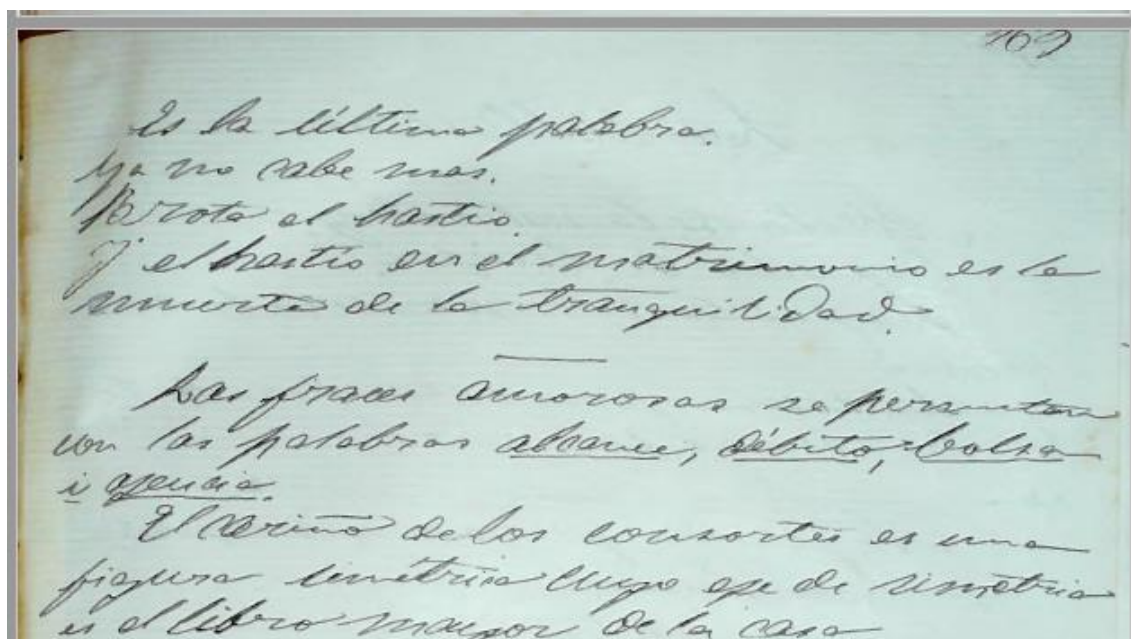 169
Es la última palabra.
Ya no cabe mas.
Brota el hastio.
I el hastío en el matrimonio es la
muerte de la tranquilidad.
Las fraces amorosas se permutan
con las palabras alcance, débito, bolsa
i agencia.
El cariño de los consortes es una
figura simétrica cuyo eje de simetria
es el libro mayor de la casa